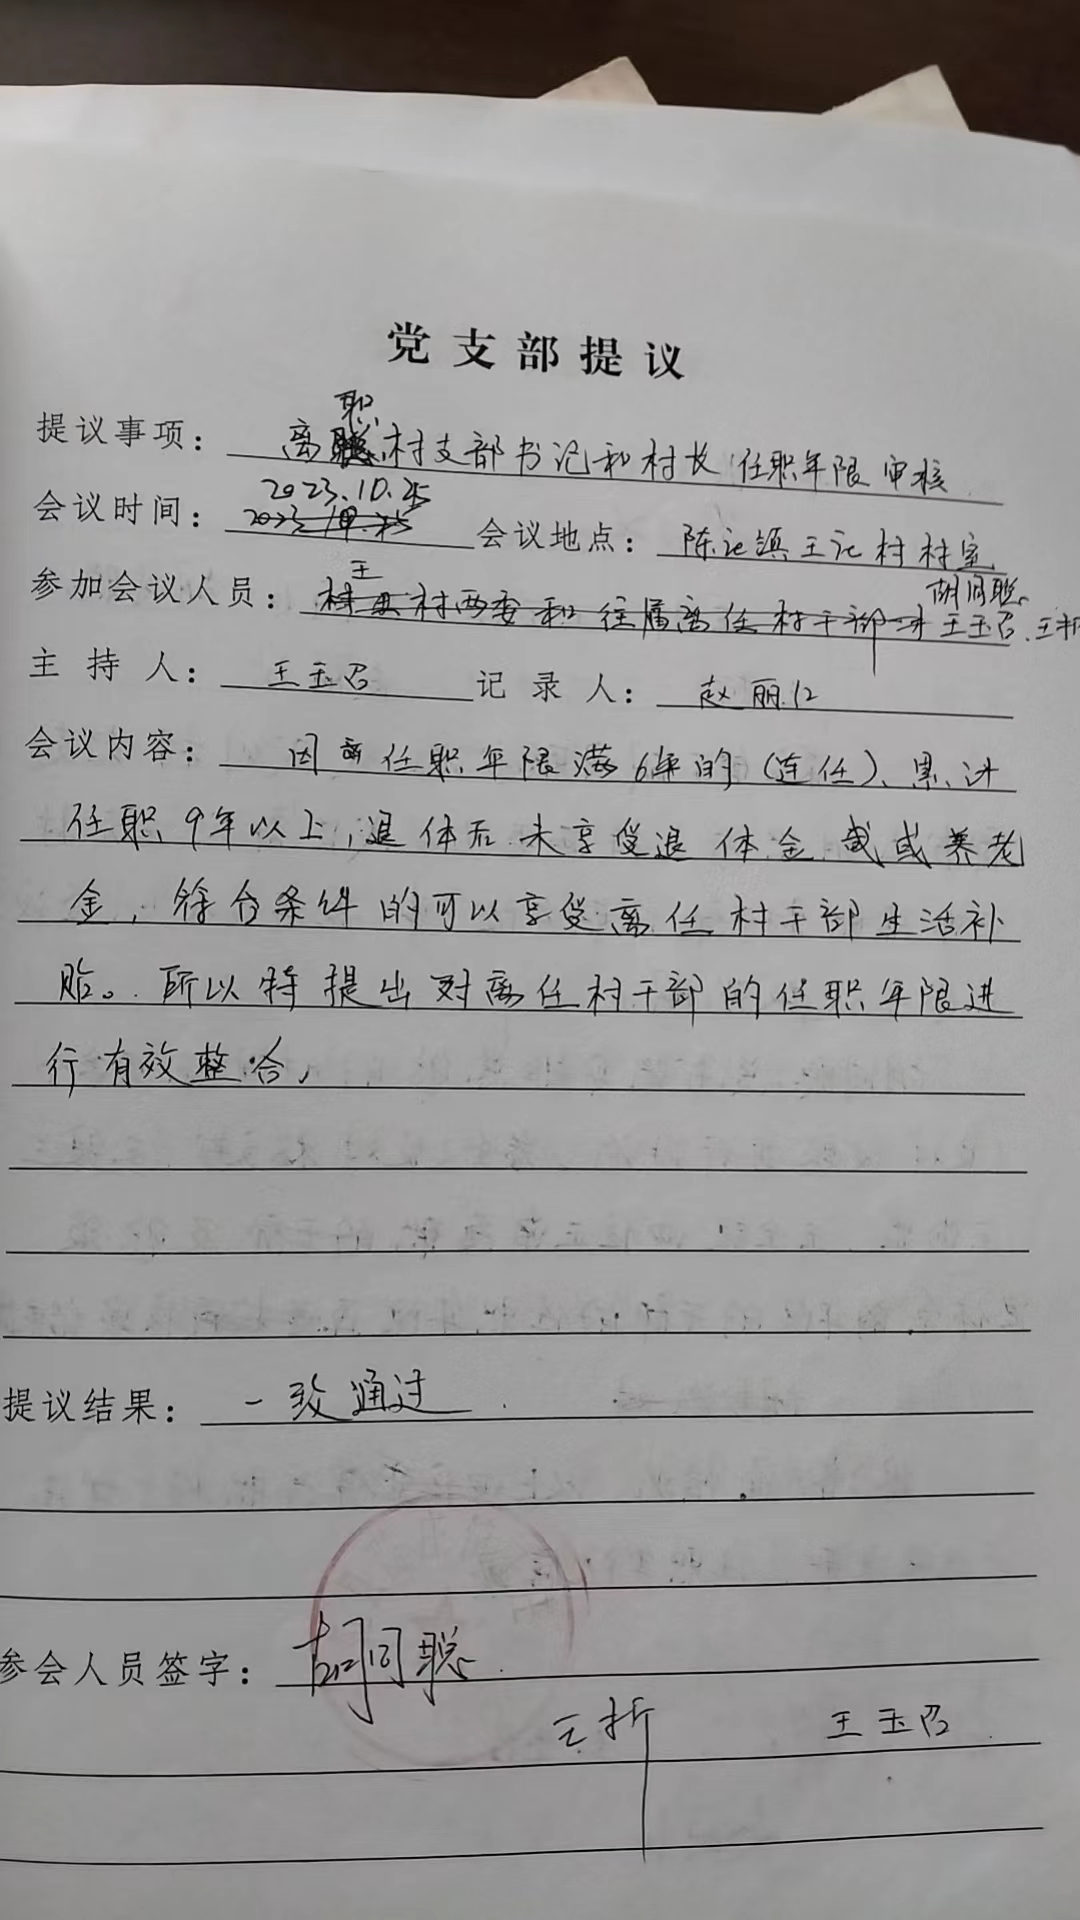 党支部提议
职
提议事项： 离村支部书记和村长任职年限审核
2023.10.25
会议时间： 会议地点： 陈记镇王记村村室
王 胡同聪
参加会议人员： 村两委和往届离任村干部 王玉召、王
主持人： 王玉召 记录人： 赵丽
会议内容： 因离任职年限满6年的（连任）、累计
任职9年以上，退体后未享受退体金或或养老
金，符合条件的可以享受离任村干部生活补
贴。所以特提出对离任村干部的任职年限进
行有效整合，
提议结果： 一致通过
参会人员签字： 胡同聪
王折 王玉召